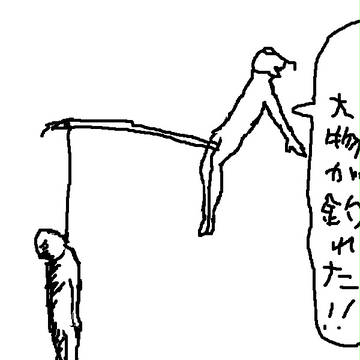 大物が釣れた!!